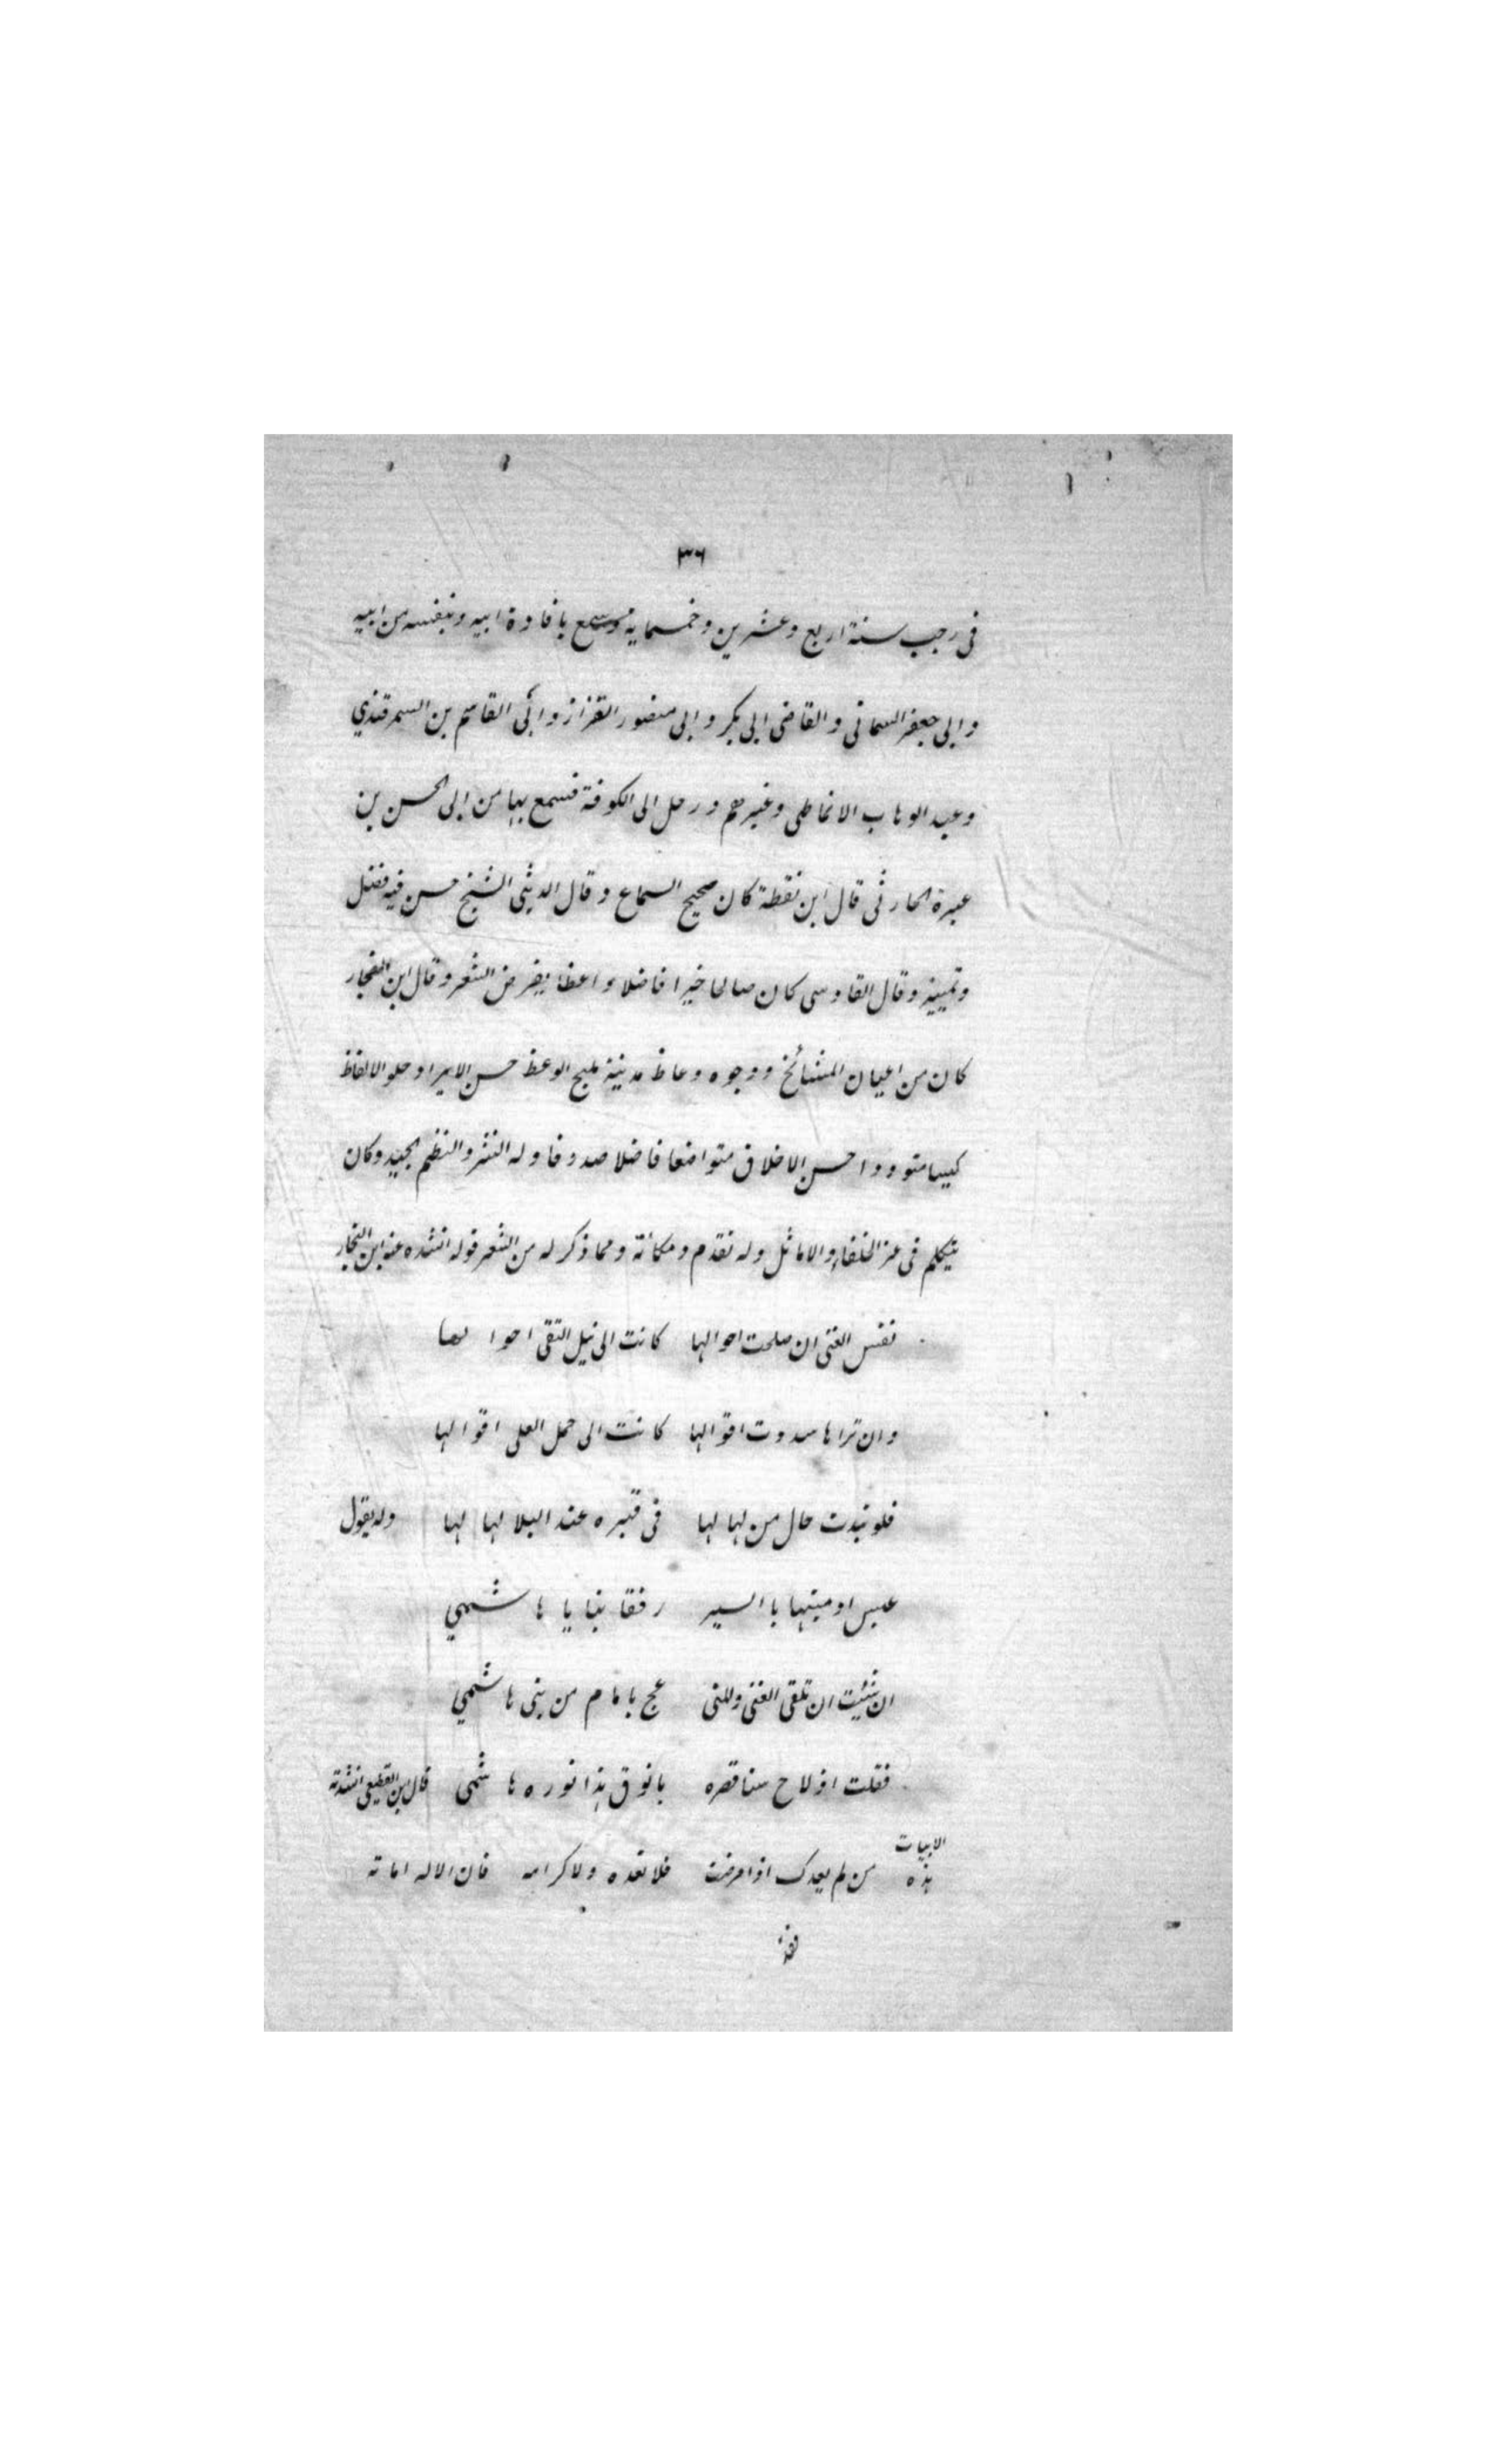 ٣٦
فى رجب سنة اربع وعشرين وخمسماية وسمع بافادة ابيه وبنفسه من ابيه
وابى جعفر السمانى والقاضى ابى بكر وابى منصور القزاز وابى القاسم بن السمرقندي
وعبد الوهاب الانماطى وغيرهم ورحل الى الكوفة فسمع بها من ابى الحسن بن
عبرة الحارثى قال ابن نقطة كان صحيح السماع وقال الدبيثى الشيخ حسن فيه فضل
وتمييز وقال القادسى كان صالحا خيرا فاضلا واعظا يقرض الشعر وقال ابن النجار
كان من اعيان المشائخ ووجوه وعاظ مدينة مليح الوعظ حسن الايراد حلو الالفاظ
كيسا متوددا حسن الاخلاق متواضعا فاضلا صدوقا وله النثر والنظم الجيد وكان
يتكلم فى عز الخلفاء والاماثل وله تقدم ومكانة ومما ذكر له من الشعر قوله انشده عنه ابن النجار
نفس الفتى ان صلحت احوالها كانت الى نيل التقى احوا لها
وان تراها سددت اقوالها كانت الى حمل العلى اقوا لها
فلو تبدت حال من لها لها فى قبره عند البلا لها لها وله يقول
عيس اومبنها با السير رفقا بنا يا ها شمي
ان شئت ان تلقى الغنى والمنى عج بامام من بنى هاشمي
فقلت اذ لاح سنا قصره يانوق هذا نوره ها شمى قال ابن القطيعى انشدته
هذه الابيات من لم يعدك اذا مرضت فلا تعده ولا كرامه فان الاله اماته
فقد